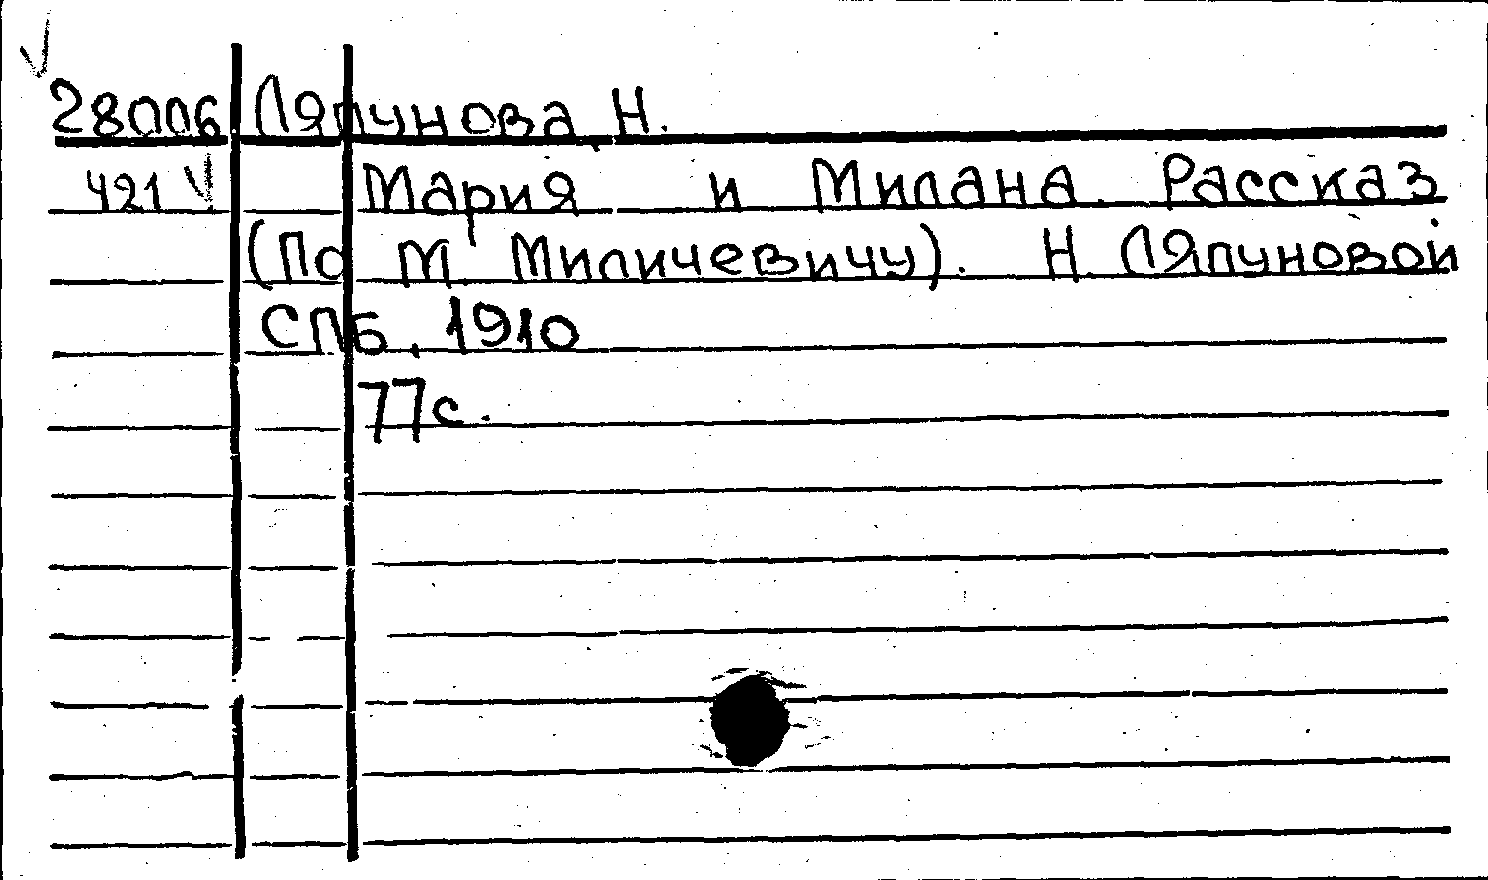 28006 Ляпунова Н.
421 Мария и Милана. Рассказ
(По М. Миличевичу). Н Ляпуновой
СПБ, 1910
77с.